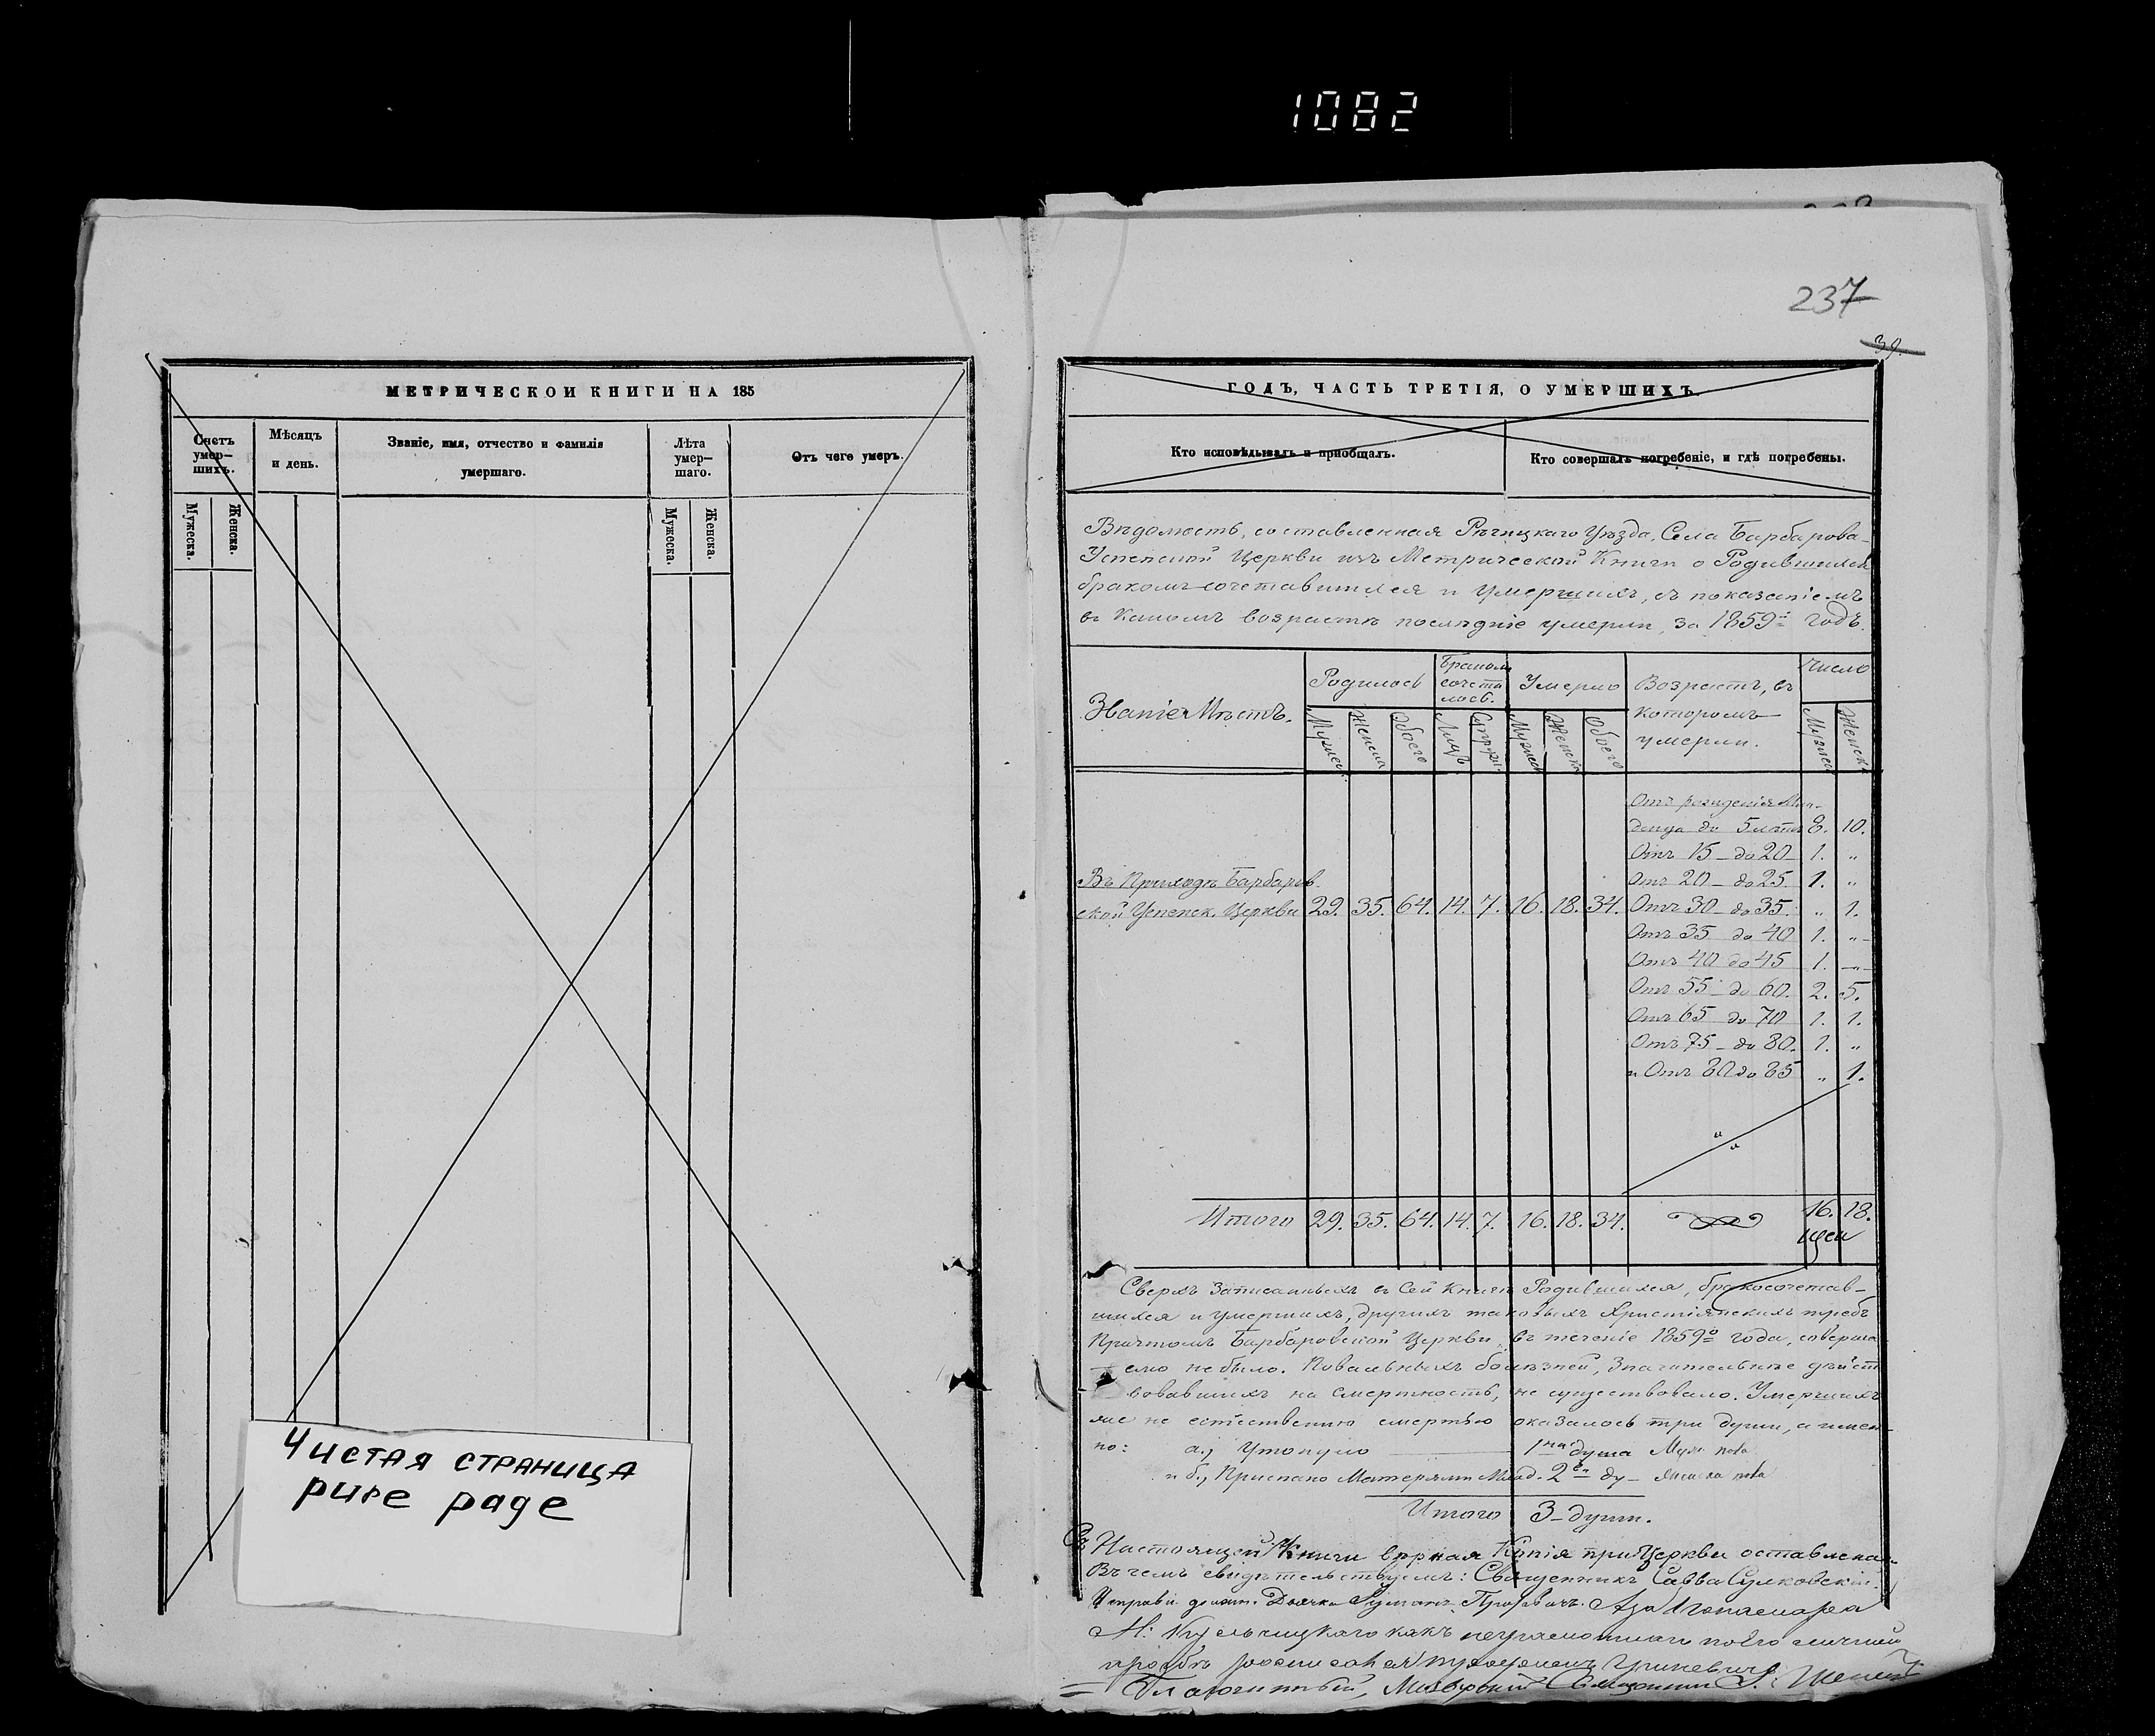 1082
237
39.
МЕТРИЧЕСКОЙ КНИГИ НА 185
Счетъ умер— шихъ.
Мѣсяцъ и день.
Званіе, имя, отчество и фамилія умершаго.
Лѣта умер— шаго.
Отъ чего умеръ.
Мужеска. Женска.
Мужеска. Женска.
Чистая страница
pure page
ГОДЪ, ЧАСТЬ ТРЕТІЯ, О УМЕРШИХЪ.
Кто исповѣдывалъ и пріобщалъ.
Кто совершалъ погребеніе, и гдѣ погребены.
Вѣдомость, составленная Рѣчицкаго Уѣзда, Села Барбарова
Успенской Церкви изъ Метрической Книги о Родившихся
бракомъ сочетавшихся и Умершихъ, съ показаніемъ
въ какомъ возрастѣ послѣдніе умерли, за 1859й годъ.
Званіе Мѣстъ.
Родилось
Бракомъ сочета лось.
Умерло
Возрастъ, въ которомъ умерли.
Число
Мужес. Женска Обоего Лицъ Мужеск Женска Обоего Мужеск Женск.
Отъ рожденія Мла-
денца до 5 лѣтъ 8. 10.
Отъ 15 - до 20 1. "
Отъ 20 - до 25. 1. "
Въ Приходѣ Барбаров.
ской Успенск. Церкви 29. 35. 64. 14. 7. 16. 18. 34. Отъ 30 - до 35. " 1.
Отъ 35 до 40 1. "
Отъ 40 до 45 1. "
Отъ 55 - до 60. 2. 5.
Отъ 65 до 70 1. 1.
Отъ 75 - до 80. 1. "
и Отъ 80 до 85 " 1.
Итого 29. 35. 64. 14. 7. 16. 18. 34. 16. 18.
Сверхъ Записанныхъ въ Сей Книгѣ Родившихся, бракосочетав-
шихся и умершихъ, другихъ таковыхъ Христіянскихъ требъ
Причтомъ Барбаровской Церкви, въ теченіе 1859го года, соверша
емо не было. Повальныхъ болѣзней, Значительнѣе дѣйст
вовавшихъ на смертность, не существовало. Умершихъ
же не естественною смертью оказалось три души, а имен-
но: а.) Утонуло 1на душа Муж. пола
и б.) Приспано Матерями Млад. 2ѣ ду- женска пола
Итого 3 - души.
Съ Настоящей Книги вѣрная Копія при Церкви оставлена.
Въ чемъ свидѣтельствуемъ: Священникъ Савва Сулковскій.